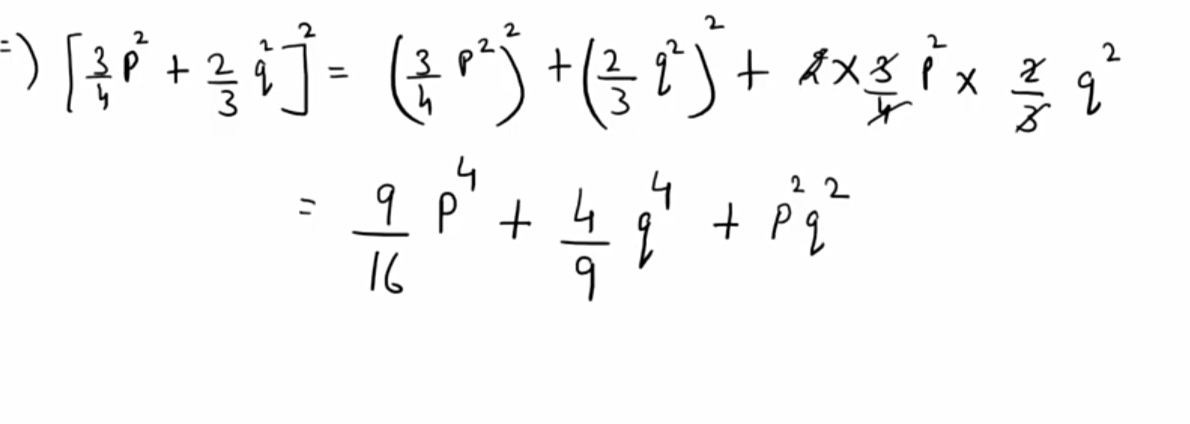 =) [3/4 p² + 2/3 q²]² = (3/4 p²)² + (2/3 q²)² + 2 × 3/4 p² × 2/3 q²
= 9/16 p⁴ + 4/9 q⁴ + p²q²